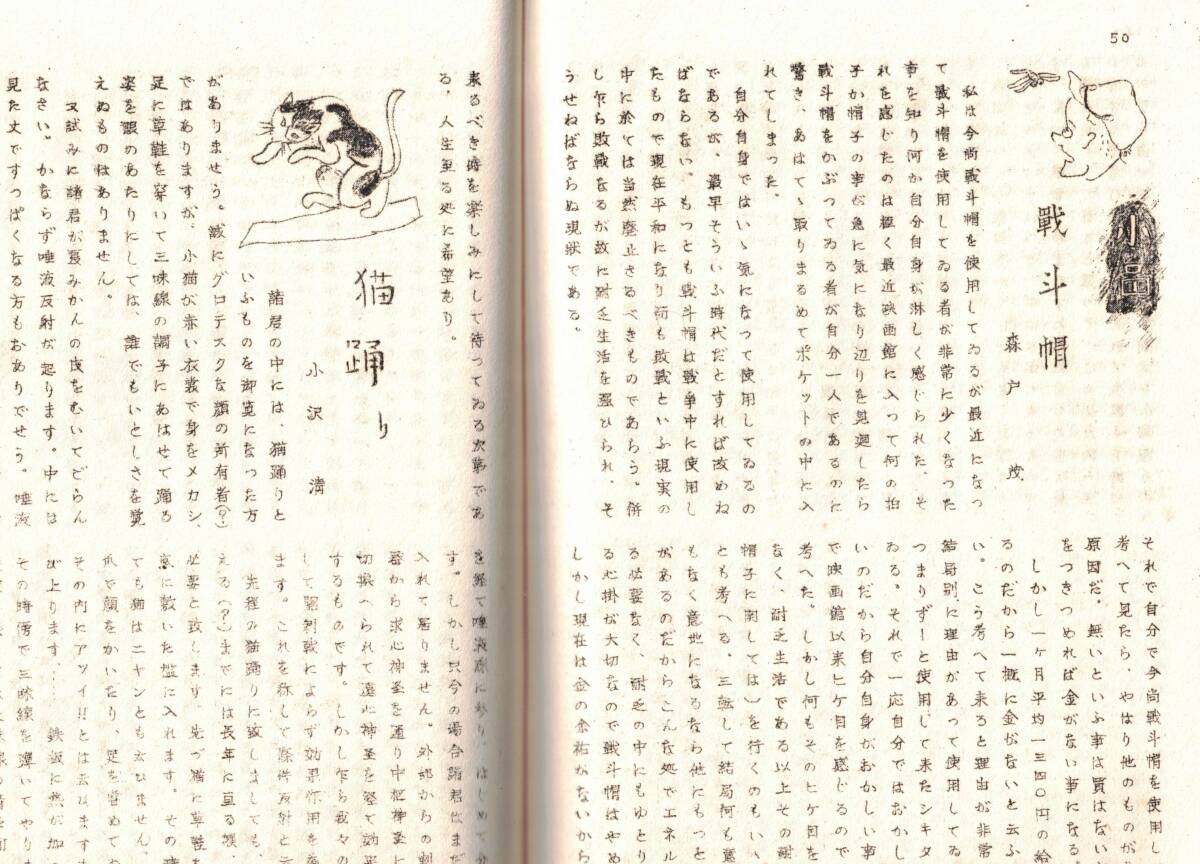 50
戰斗帽
森戸茂
私は今尚戰斗帽を使用してゐるが最近になつ
て戰斗帽を使用してゐる者が非常に少くなつた
事を知り何か自分自身が淋しく感じられた。そ
れを感じたのは極く最近映画館に入つて何の拍
子か帽子の事が急に気になり辺りを見廻したら
戰斗帽をかぶつてゐる者が自分一人であるのに
驚き、あはてゝ取りまるめてポケットの中に入
れてしまつた。
自分自身ではいゝ気になつて使用してゐるの
であるが、最早そういふ時代だとすれば改めね
ばならない。もつとも戰斗帽は戰争中に使用し
たもので現在平和になり而も敗戰といふ現実の
中に於ては当然廃止さるべきものであらう。併
し乍ら敗戰なるが故に耐乏生活を强ひられ、そ
うせねばならぬ現狀である。
それで自分で今尚戰斗帽を使用し
考へて見たら、やはり他のものが
原因だ。無いといふ事は買はない
をつきつめれば金がない事になる
しかし一ヶ月平均一三四〇円の給
るのだから一概に金がないと云ふ
い。こう考へて来ると理由が非常
結局別に理由があつて使用してゐ
つまりずーと使用して来たンキタ
ゐる。それで一応自分ではおかし
いのだから自分自身がおかしい事
で映画館以来ヒケ目を感じるので
考へた。しかし何もそのヒケ目を
なく、耐乏生活である以上その耐
帽子に関しては)を行くのもいゝ
とも考へる。三転して結局何も意
もなく意地になるなら他にもつと
があるのだからこんな処でエネル
る必要なく、耐乏の中にもゆとり
る心掛が大切なので戰斗帽はやめ
しかし現在は金の余裕がないから
来るべき時を楽しみにして待つてゐる次第であ
る。人生至る処に希望あり。
猫踊り
小沢清
諸君の中には、猫踊りと
いふものを御覧になつた方
がありませう。誠にグロテスクな顔の所有者(?)
ではありますが、小猫が赤い衣裳で身をメカシ、
足に草鞋を穿いて三味線の調子にあはせて踊る
姿を眼のあたりにしては、誰でもいとしさを覚
えぬものはありません。
又試みに諸君が夏みかんの皮をむいてごらん
なさい。かならず唾液反射が起ります。中には
見た丈ですつぱくなる方もおありでせう。唾液
を経て唾液腺に参り、はじめて分
す。しかし只今の場合諸君はまだ
入れて居りません。外部からの刺
器から求心神圣を通り中枢神圣に
切換へられて遠心神圣を経て効果
するものです。しかし乍ら我々の
ます。これを称して條件反射と云
先程の猫踊りに致しましても、
える(?)までには長年に亘る訓
必要と致します。先づ猫に草鞋を
ても猫はニャンとも云ひません。
爪で顔をかいたり、足を甞めてゐ
その内にアツイ!!とは云ひます
び上ります。
その時傍で三味線を弾いてやりま